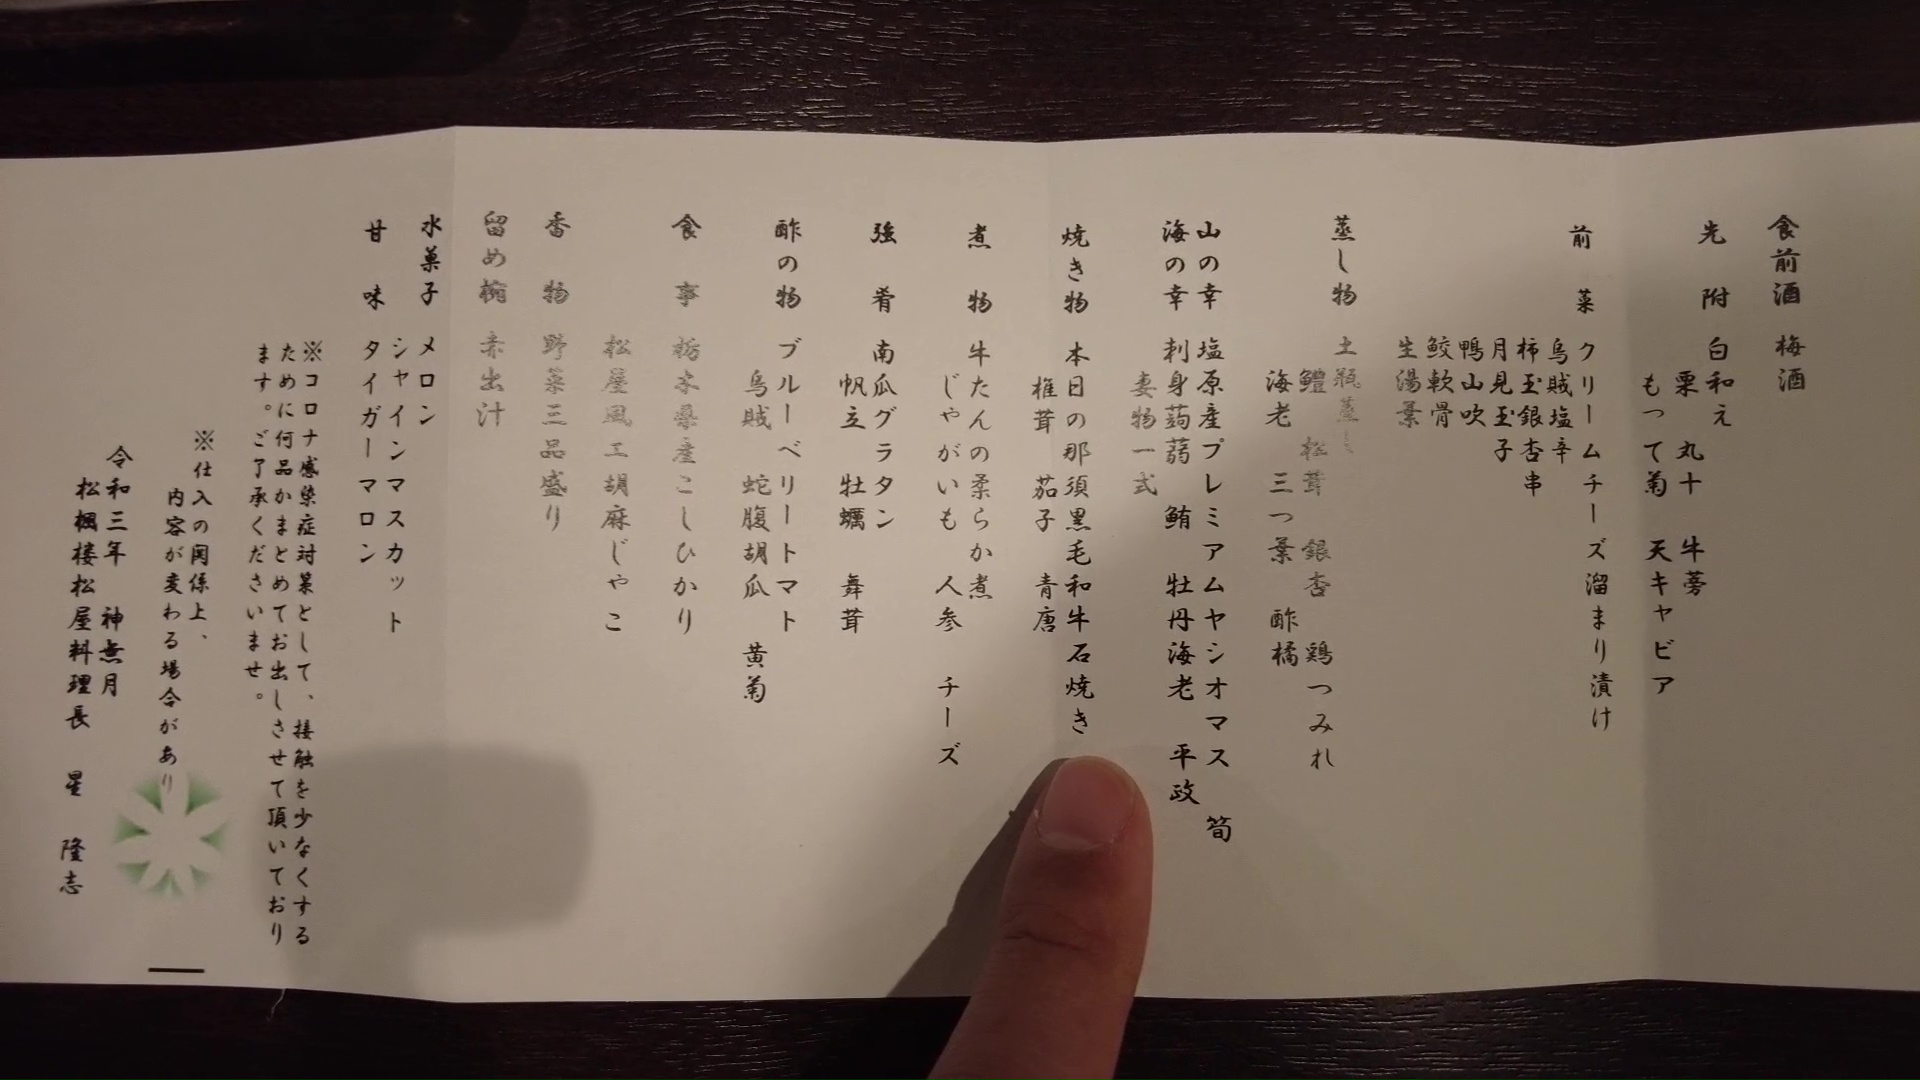 食前酒 梅酒
先附 白和え
栗 丸十 牛蒡
もって菊 天キャビア
前菜 クリームチーズ溜まり漬け
烏賊塩辛
柿玉銀杏串
月見玉子
鴨山吹
鮫軟骨
生湯葉
蒸し物 土瓶蒸し
鱧 松茸 銀杏 鶏つみれ
海老 三つ葉 酢橘
山の幸 塩原産プレミアムヤシオマス 筍
海の幸 刺身蒟蒻 鮪 牡丹海老 平政
妻物一式
焼き物 本日の那須黒毛和牛石焼き
椎茸 茄子 青唐
煮物 牛たんの柔らか煮
じゃがいも 人参 チーズ
強肴 南瓜グラタン
帆立 牡蠣 舞茸
酢の物 ブルーベリートマト
烏賊 蛇腹胡瓜 黄菊
食事 栃木県産こしひかり
松屋風 胡麻じゃこ
香物 野菜三品盛り
留め椀 赤出汁
水菓子 メロン
シャインマスカット
甘味 タイガーマロン
※コロナ感染症対策として、接触を少なくする
ために何品かまとめてお出しさせて頂いており
ます。ご了承くださいませ。
※仕入の関係上、
内容が変わる場合があり
令和三年 神無月
松楓楼松屋料理長 星 隆志